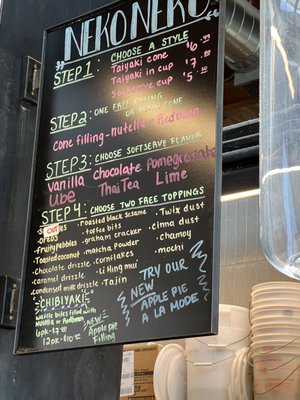 NEKO NEKO
STEP 1: CHOOSE A STYLE
Taiyaki cone $6.99
Taiyaki in cup 7.
Softserve cup $5.
STEP 2: ONE FREE FILLING
Cone filling - nutella - Redbean
STEP 3: CHOOSE SOFTSERVE FLAVOR
Vanilla Chocolate Pomegranate
Ube Thai Tea Lime
STEP 4: CHOOSE TWO FREE TOPPINGS
OUT
• roasted black sesame
• Twix dust
• OREOS
• toffee bits
• cinna dust
• fruity pebbles
• graham cracker
• chamoy
• Toasted coconut
• matcha powder
• mochi
• chocolate drizzle
• cornflakes
• caramel drizzle
• li hing mui
• condensed milk drizzle
• Tajin
CHIBIYAKI
waffle bites filled with
Nutella or Redbean
6pk - $7.
12pk - $10.
NEW
Apple Pie
Filling
TRY OUR
NEW
APPLE PIE
A LA MODE